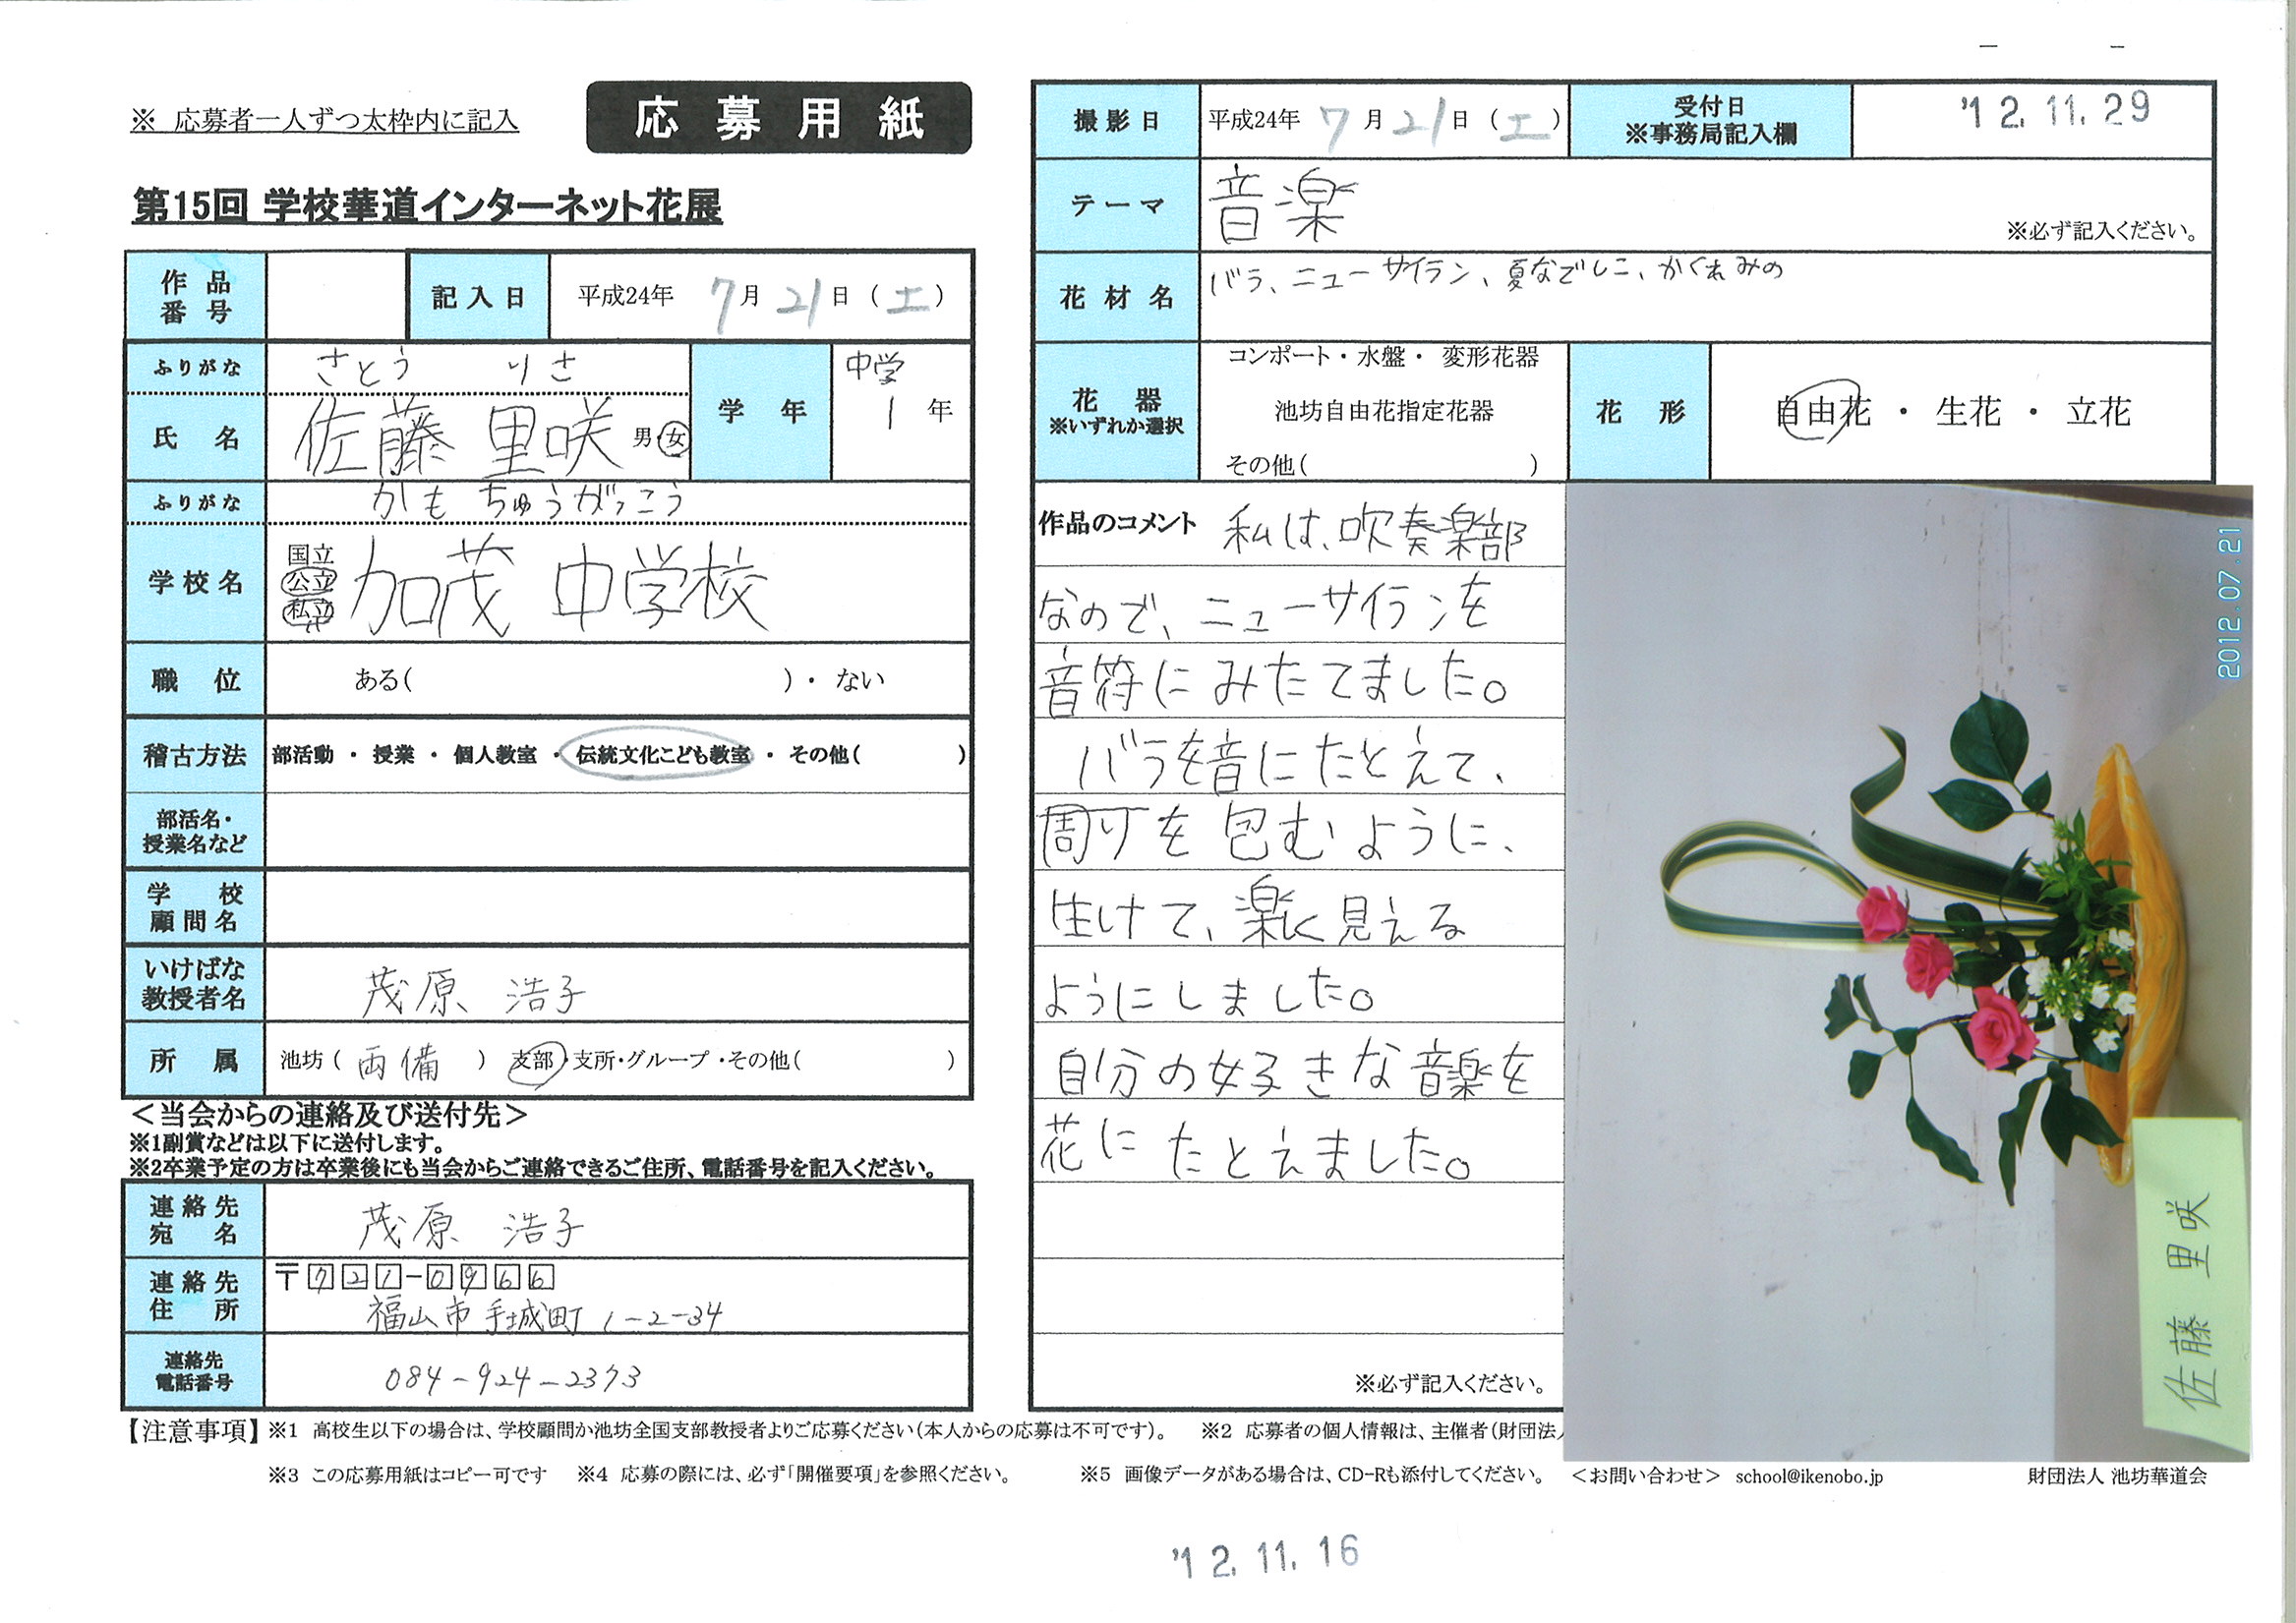 ※ 応募者一人ずつ太枠内に記入
応募用紙
第15回 学校華道インターネット花展
作品番号
記入日 平成24年 7月21日(土)
ふりがな さとう りさ
氏名 佐藤 里咲 男 女
学年 中学 1年
ふりがな かも ちゅうがっこう
学校名 国立 公立 私立 加茂 中学校
職位 ある( )・ ない
稽古方法 部活動 ・ 授業 ・ 個人教室 ・ 伝統文化こども教室 ・ その他( )
部活名・授業名など
学校顧問名
いけばな教授者名 茂原 浩子
所属 池坊( 両備 ) 支部・支所・グループ・その他( )
<当会からの連絡及び送付先>
※1副賞などは以下に送付します。
※2卒業予定の方は卒業後にも当会からご連絡できるご住所、電話番号を記入ください。
連絡先宛名 茂原 浩子
連絡先住所 〒721-0966
福山市手城町 1-2-34
連絡先電話番号 084-924-2373
撮影日 平成24年 7月21日(土)
受付日 ※事務局記入欄 '12.11.29
テーマ 音楽
※必ず記入ください。
花材名 バラ、ニューサイラン、夏なでしこ、かくれみの
花器 ※いずれか選択
コンポート・水盤・ 変形花器
池坊自由花指定花器
その他( )
花形 自由花 ・ 生花 ・ 立花
作品のコメント 私は、吹奏楽部
なので、ニューサイランを
音符にみたてました。
バラを音にたとえて、
周りを包むように、
生けて、楽しく見える
ようにしました。
自分の好きな音楽を
花にたとえました。
※必ず記入ください。
2012.07.21
佐藤 里咲
【注意事項】※1 高校生以下の場合は、学校顧問か池坊全国支部教授者よりご応募ください(本人からの応募は不可です)。 ※2 応募者の個人情報は、主催者(財団法
※3 この応募用紙はコピー可です ※4 応募の際には、必ず「開催要項」を参照ください。 ※5 画像データがある場合は、CD-Rも添付してください。 <お問い合わせ> school@ikenobo.jp 財団法人 池坊華道会
'12.11.16